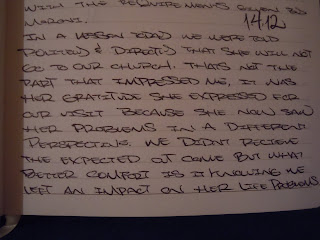 WITH THE REQUIREMENTS GIVEN BY
MORONI.
1412
IN A LESSON TODAY WE WERE TOLD
POLITELY & DIRECTLY THAT SHE WILL NOT
GO TO OUR CHURCH. THATS NOT THE
PART THAT IMPRESSED ME, IT WAS
HER GRATITUDE SHE EXPRESSED FOR
OUR VISIT BECAUSE SHE NOW SAW
HER PROBLEMS IN A DIFFERENT
PERSPECTIVE. WE DIDNT RECIEVE
THE EXPECTED OUT COME BUT WHAT
BETTER COMFORT IS IT KNOWING WE
LEFT AN IMPACT ON HER LIFE PROBLEMS.